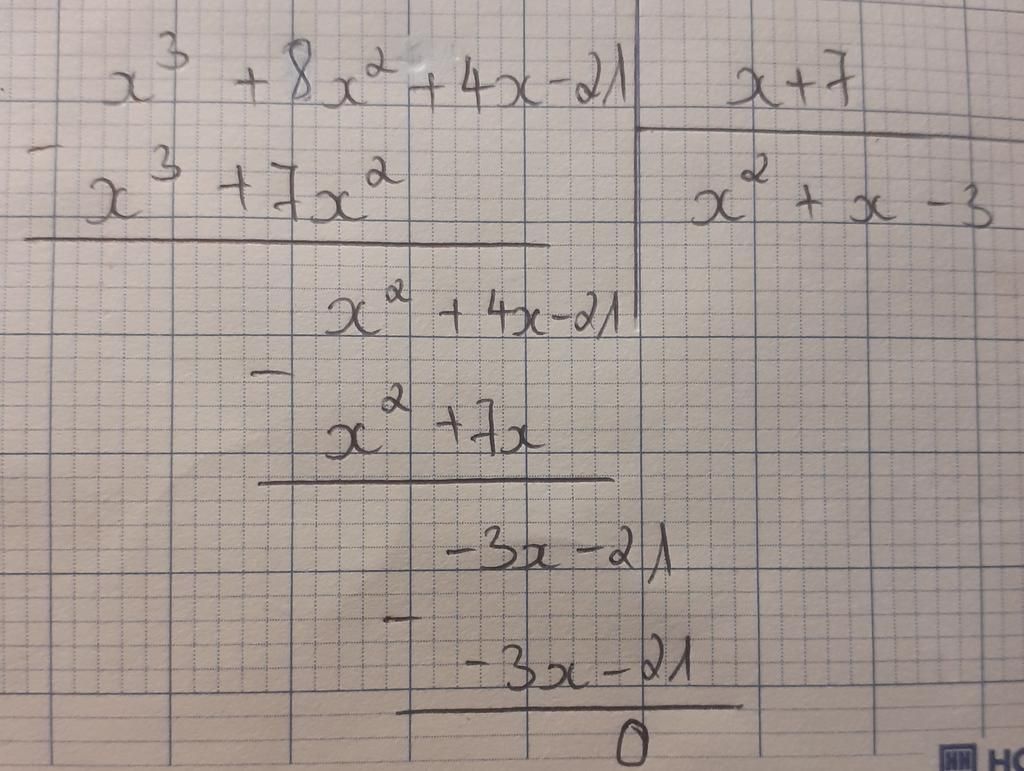 x³ + 8x² + 4x - 21 | x + 7
- x³ + 7x² | x² + x - 3
x² + 4x - 21
- x² + 7x
-3x - 21
- -3x - 21
0